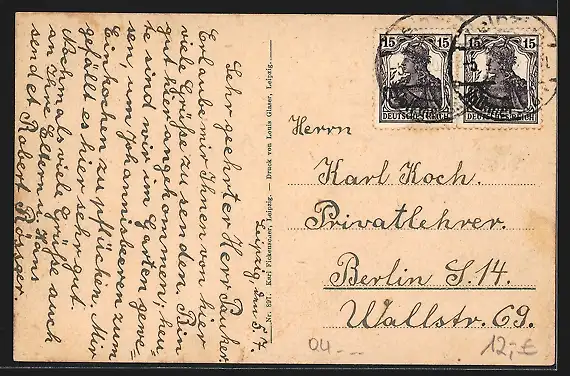 Leipzig, den 5.7.
Sehr geehrter Herr Pauker.
Erlaube mir Ihnen von hier
viele Grüße zu senden. Bin
gut hier angekommen, heu-
te sind wir im Garten gewe-
sen, um Johannisbeeren zum
Einkochen zu pflücken. Mir
gefällt es hier sehr gut.
Nochmals viele Grüße auch
an Ihre Eltern u. Hans
sendet Robert Rössger.
Nr. 897. Karl Fickenscher, Leipzig. — Druck von Louis Glaser, Leipzig.
15 15
15 15
DEUTSCHES REICH
DEUTSCHES REICH
Herrn
Karl Koch.
Privatlehrer.
Berlin S. 14.
Wallstr. 69.
04
12,-€